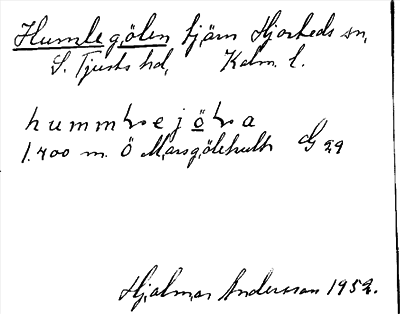 Humlegölen tjärn Hjorteds sn,
S. Tjusts hd, Kalm. l.
hummɽejöɽa
1.400 m. Ö Marsgölehult G 29
Hjalmar Andersson 1952.